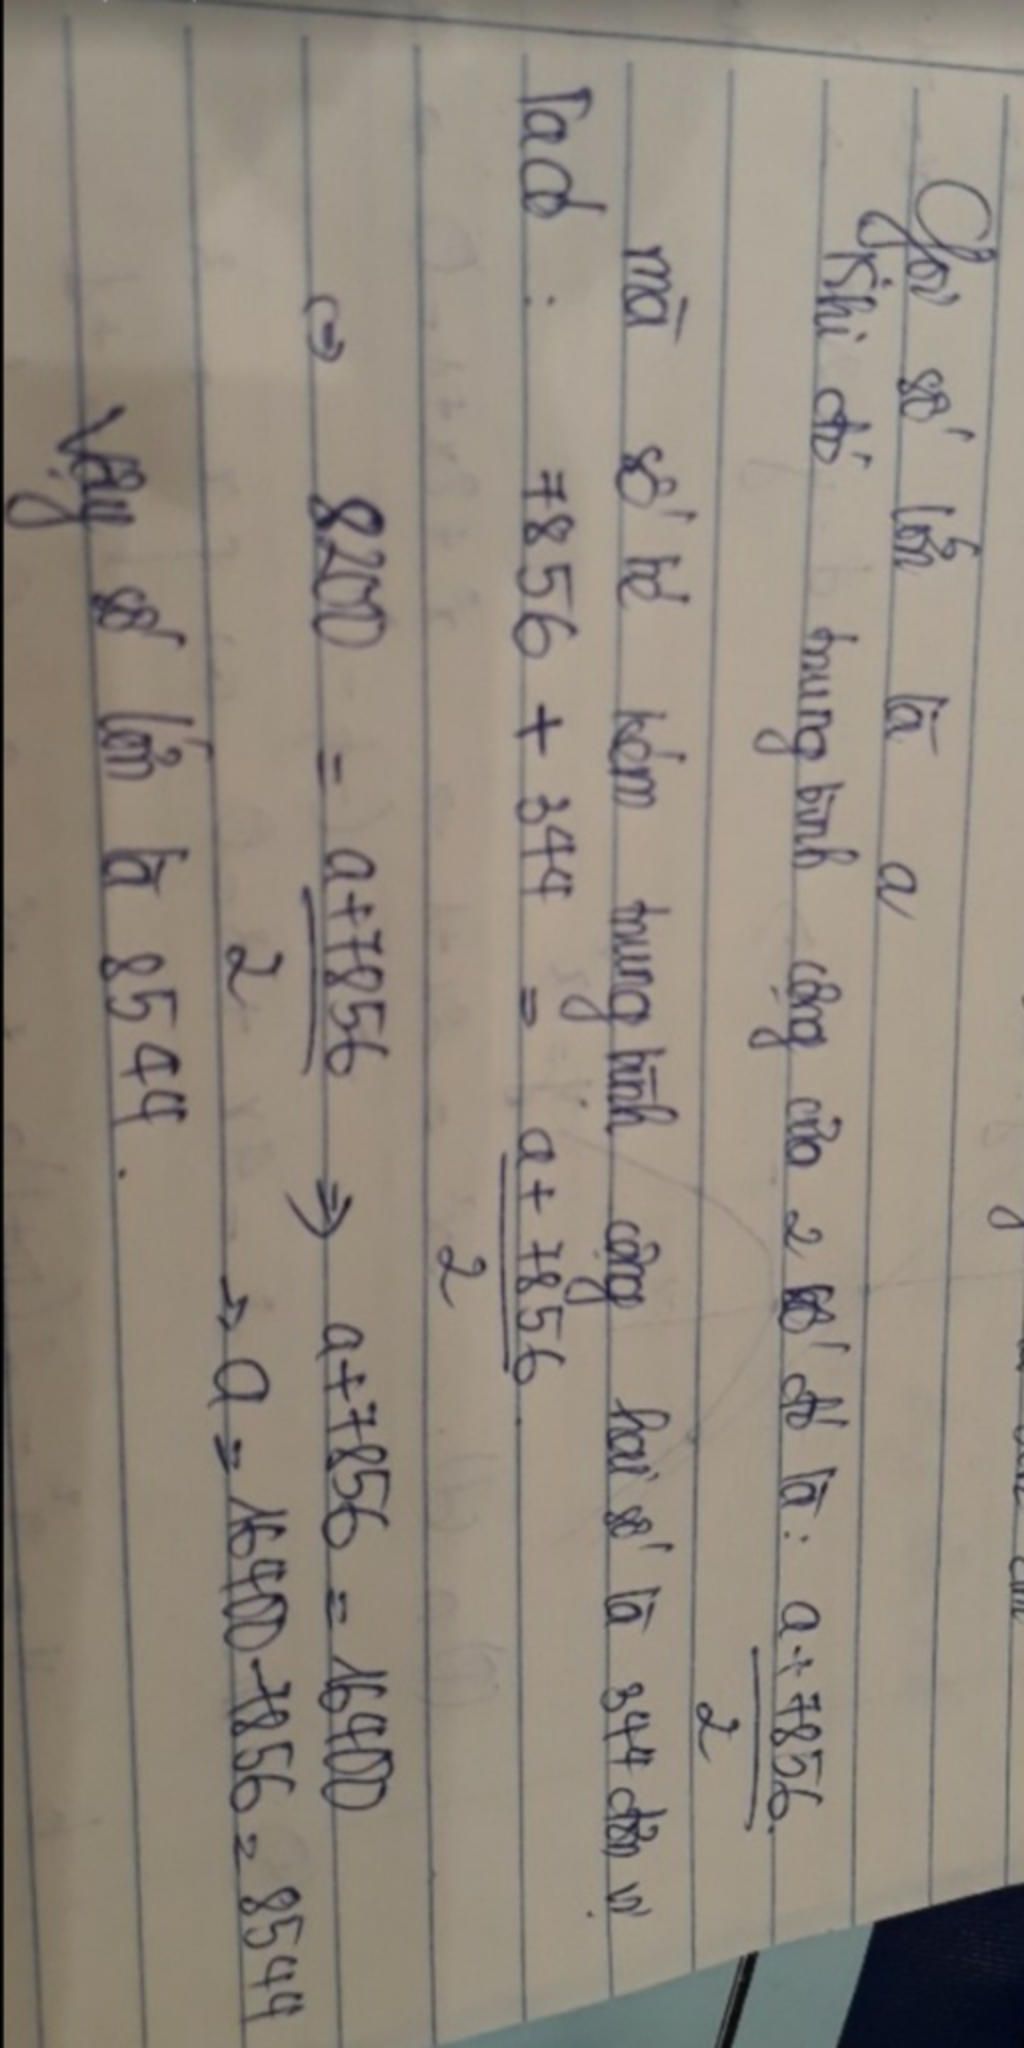 Gọi số lớn là a
Khi đó trung bình cộng của 2 số đó là: a+7856.
2
mà số bé kém trung bình cộng hai số là 344 đơn vị
Ta có: 7856 + 344 = a + 7856
2
⇔ 8200 = a+7856 ⇒ a+7856 = 16400
2
→ a = 16400-7856 = 8544
Vậy số lớn là 8544.